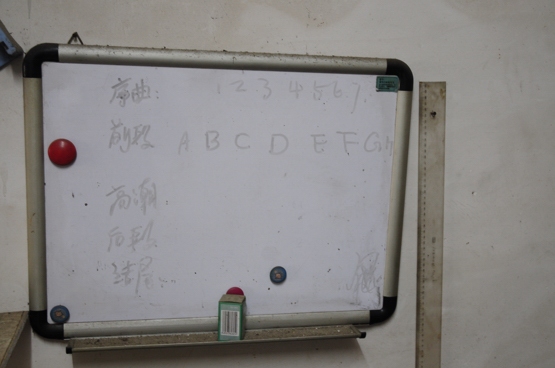 序曲: 1 2 3 4 5 6 7.
前段 A B C D E F G
高潮
后段
结局